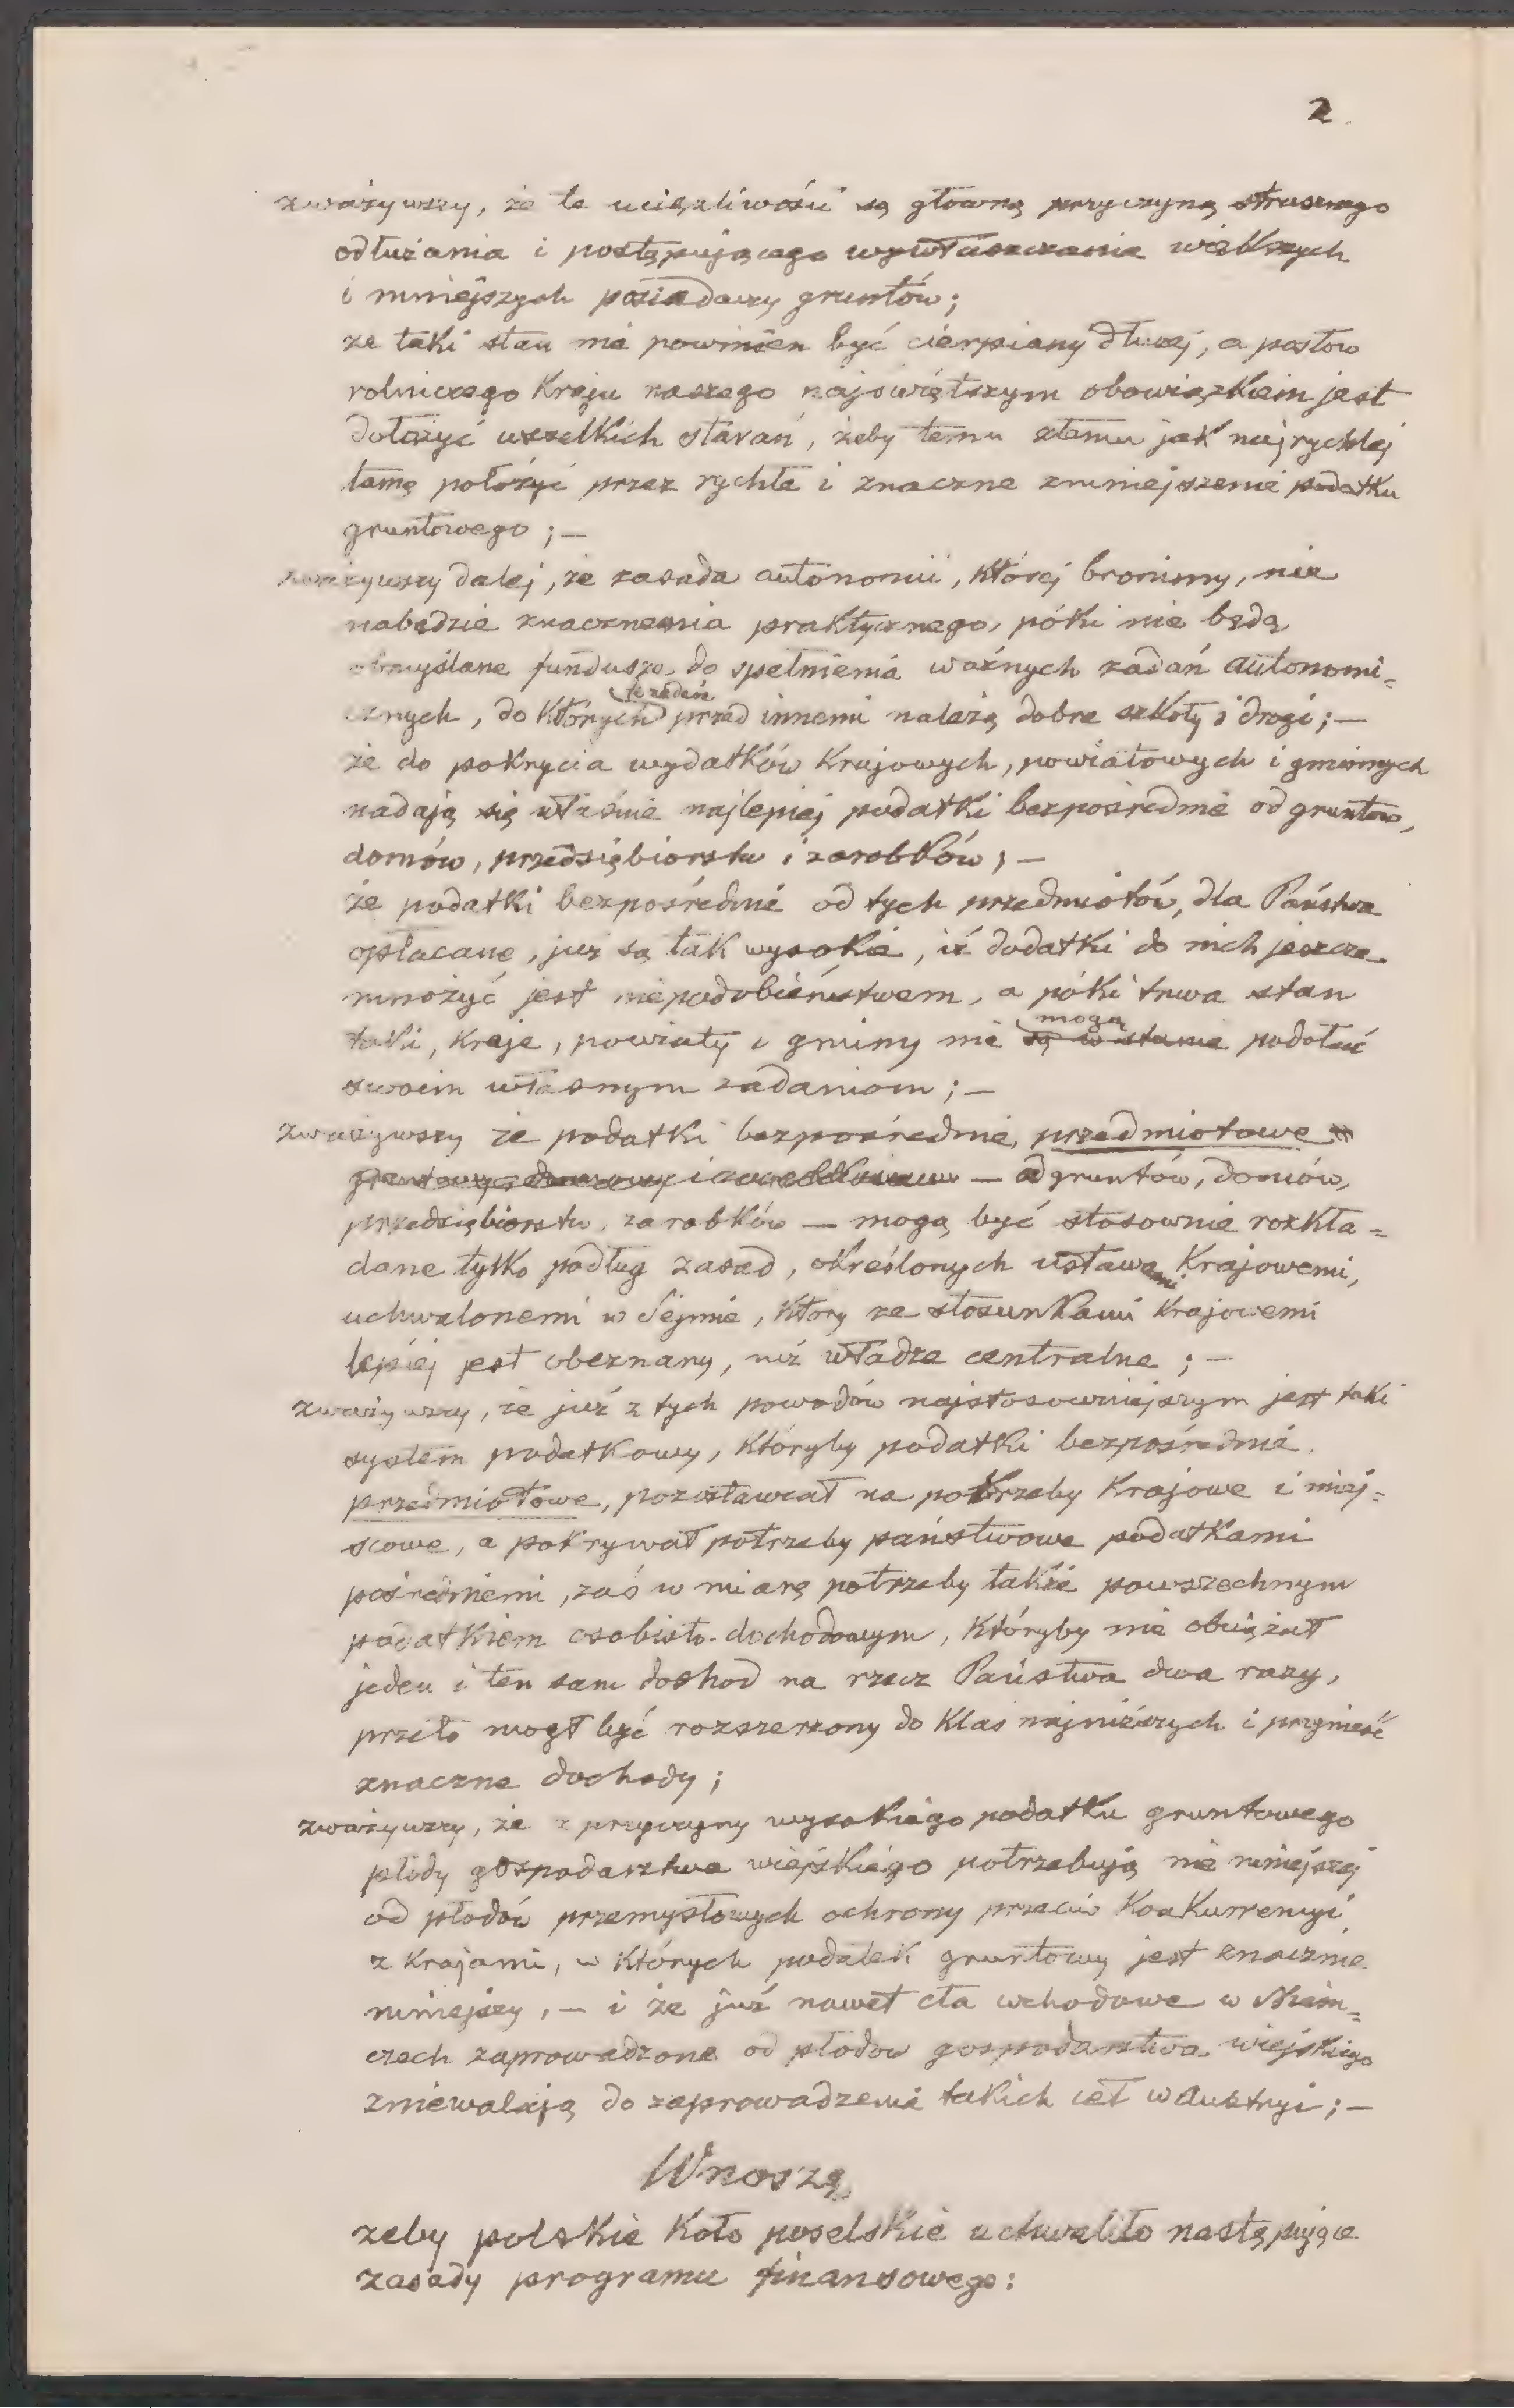 2.
zważywszy, że te uciążliwości są główną przyczyną strasznego
odłużania i postępującego wywłaszczania większych
i mniejszych posiadaczy gruntów;
że taki stan nie powinien być cierpiany dłużej, a posłów
rolniczego Kraju naszego najświętszym obowiązkiem jest
dołożyć wszelkich starań, żeby temu złemu jak najrychlej
tamę położyć przez rychłe i znaczne zmniejszenie podatku
gruntowego; —
zważywszy dalej, że zasada autonomii, której bronimy, nie
nabędzie znaczenia praktycznego, póki nie będą
obmyślane fundusze do spełnienia ważnych zadań autonomi=
cznych, do których przed innemi należą dobre szkoły i drogi; —
że do pokrycia wydatków Krajowych, powiatowych i gminnych
nadają się właśnie najlepiej podatki bezpośrednie od gruntów,
domów, przedsiębiorstw i zarobków; —
że podatki bezpośrednie od tych przedmiotów, dla Państwa
opłacane, już są tak wysokie, iż dodatki do nich jeszcze
mnożyć jest niepodobieństwem, a póki trwa stan
taki, Kraje, powiaty i gminy nie mogą są w stanie podołać
swoim własnym zadaniom; —
zważywszy że podatki bezpośrednie, przedmiotowe
— od gruntów, domów,
przedsiębiorstw, zarobków — mogą być stosownie rozkła=
dane tylko podług zasad, określonych ustawami Krajowemi,
uchwalonemi w Sejmie, który ze stosunkami Krajowemi
lepiej jest obeznany, niż władze centralne; —
zważywszy, że już z tych powodów najstosowniejszym jest taki
system podatkowy, któryby podatki bezpośrednie,
przedmiotowe, pozostawiał na potrzeby Krajowe i miej=
scowe, a pokrywał potrzeby państwowe podatkami
pośredniemi, zaś w miarę potrzeby także powszechnym
podatkiem osobisto-dochodowym, któryby nie obciążał
jeden i ten sam dochod na rzecz Państwa dwa razy,
przeto mogł być rozszerzony do Klas najniższych i przynieść
znaczne dochody;
zważywszy, że z przyczyny wysokiego podatku gruntowego
płody gospodarstwa wiejskiego potrzebują nie mniejszej
od płodów przemysłowych ochrony przeciw Konkurrencyi
z Krajami, w których podatek gruntowy jest znacznie
mniejszy, — i że już nawet cła wchodowe w Niem=
czech zaprowadzone od płodów gospodarstwa wiejskiego
zniewalają do zaprowadzenia takich ceł w Austryi; —
Wnoszę,
żeby polskie Koło poselskie uchwaliło następujące
zasady programu finansowego: